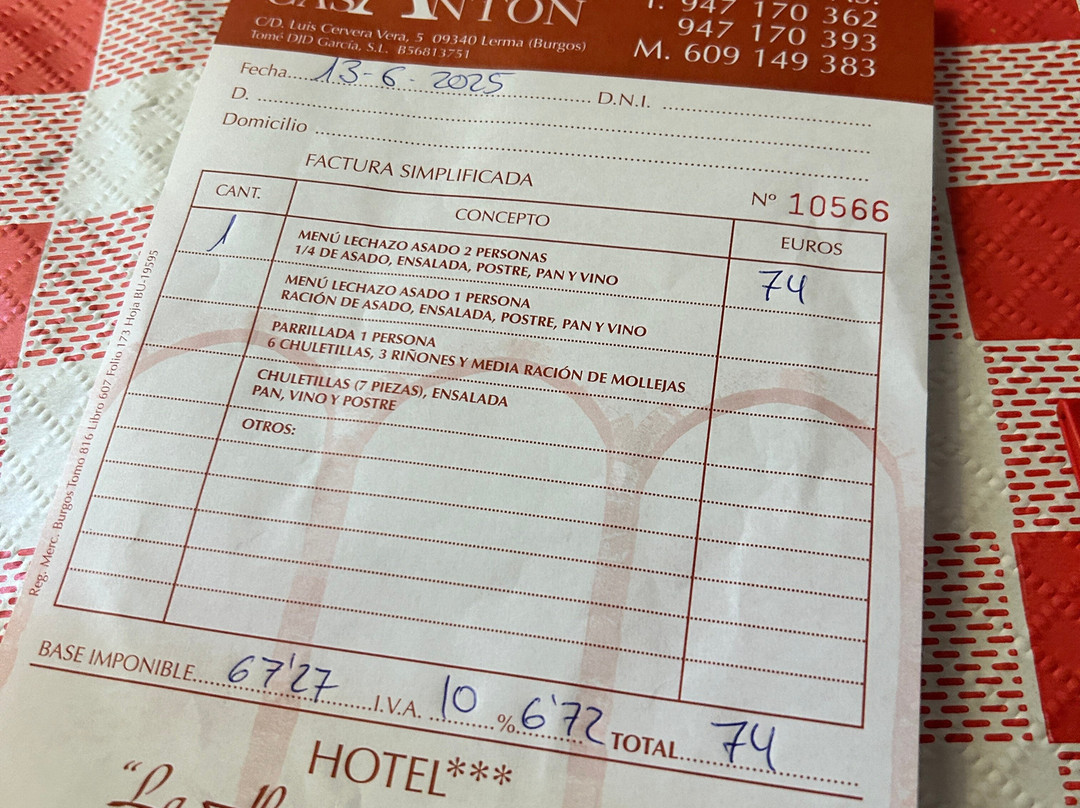 CASA ANTÓN
T. 947 170 362
947 170 393
M. 609 149 383
C/D. Luis Cervera Vera, 5 09340 Lerma (Burgos)
Tomé DJD García, S.L. B56813751
Fecha 13-6-2025 D.N.I.
D.
Domicilio
FACTURA SIMPLIFICADA
Nº 10566
CANT. CONCEPTO EUROS
1 MENÚ LECHAZO ASADO 2 PERSONAS 74
1/4 DE ASADO, ENSALADA, POSTRE, PAN Y VINO
MENÚ LECHAZO ASADO 1 PERSONA
RACIÓN DE ASADO, ENSALADA, POSTRE, PAN Y VINO
PARRILLADA 1 PERSONA
6 CHULETILLAS, 3 RIÑONES Y MEDIA RACIÓN DE MOLLEJAS
CHULETILLAS (7 PIEZAS), ENSALADA
PAN, VINO Y POSTRE
OTROS:
Reg. Merc. Burgos Tomo 816 Libro 607 Folio 173 Hoja BU-19595
BASE IMPONIBLE 67'27 I.V.A. 10 % 6'72 TOTAL 74
HOTEL***